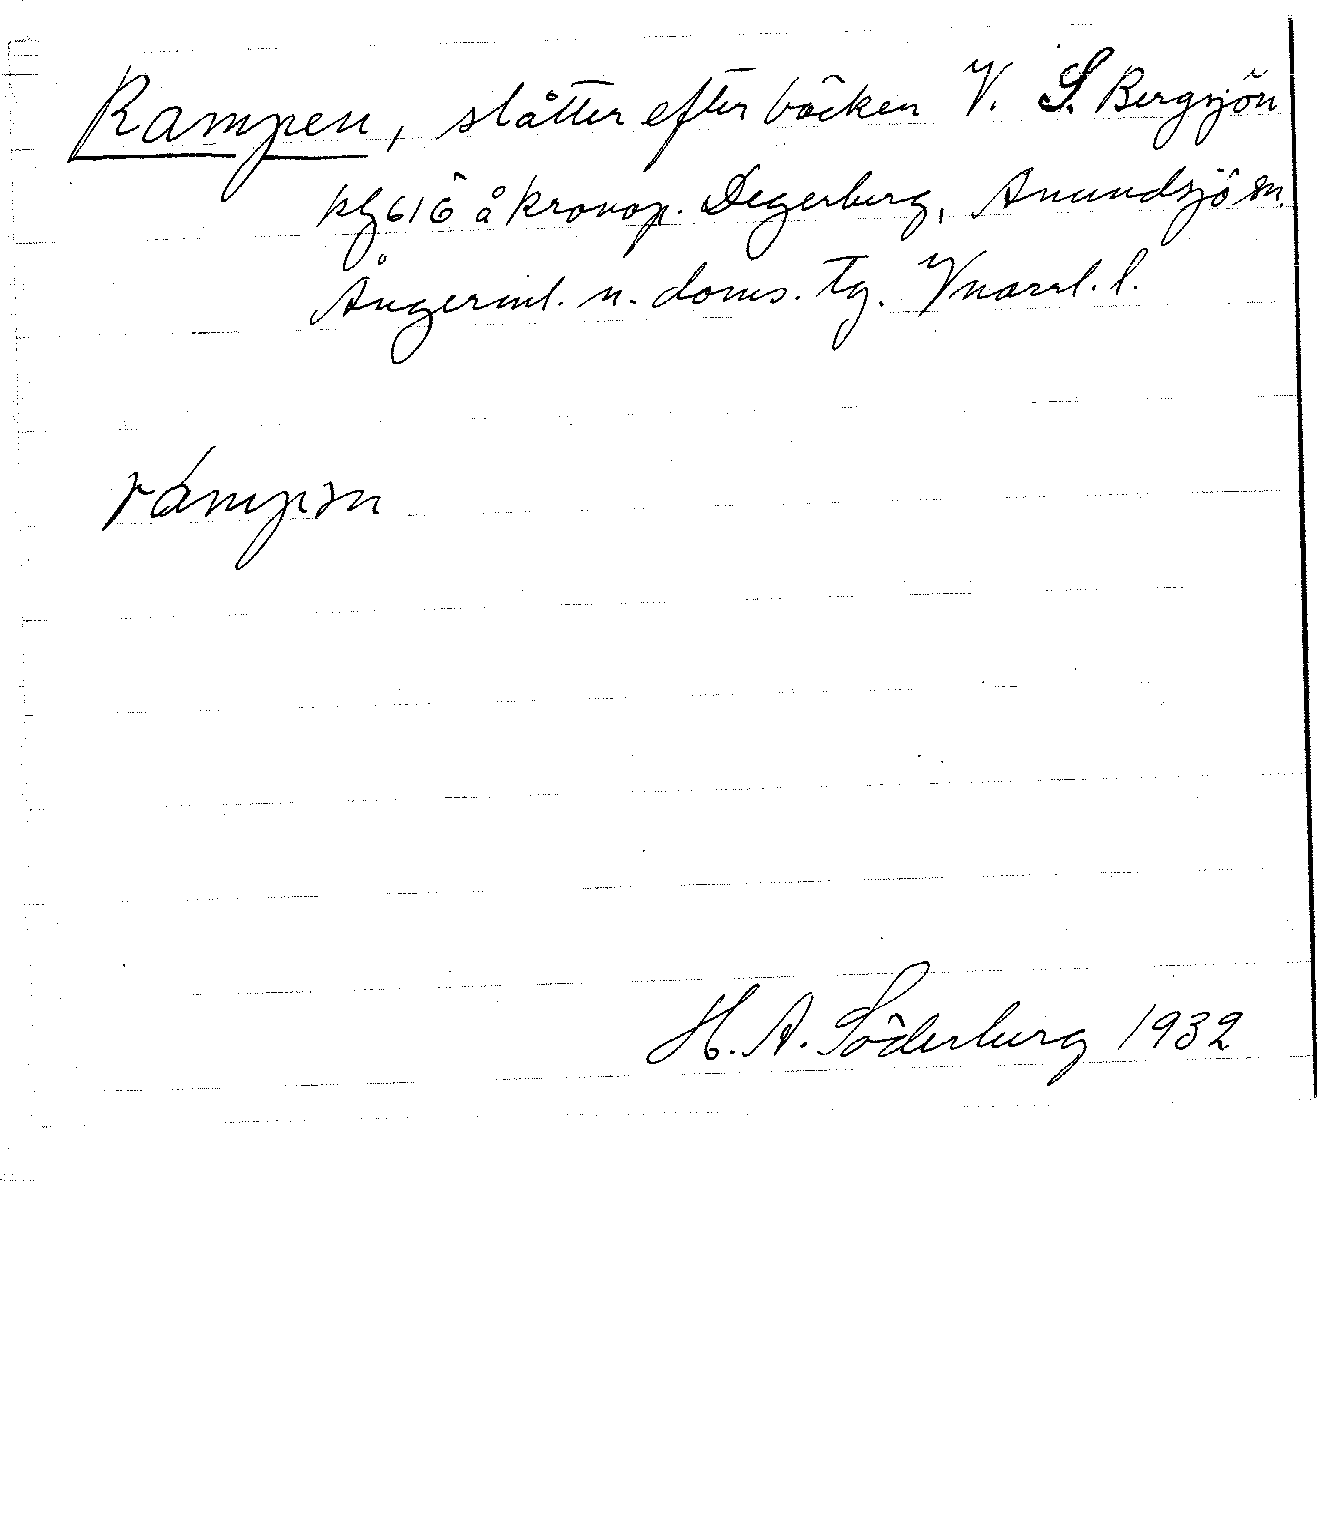 Rampen, slåtter efter bäcken V. S. Bergsjön
kfg 616 å kronop. Degerberg, Anundsjö sn.
Ångerml. n. doms. tg. Vnorrl. l.
rámpən
H. A. Söderberg 1932